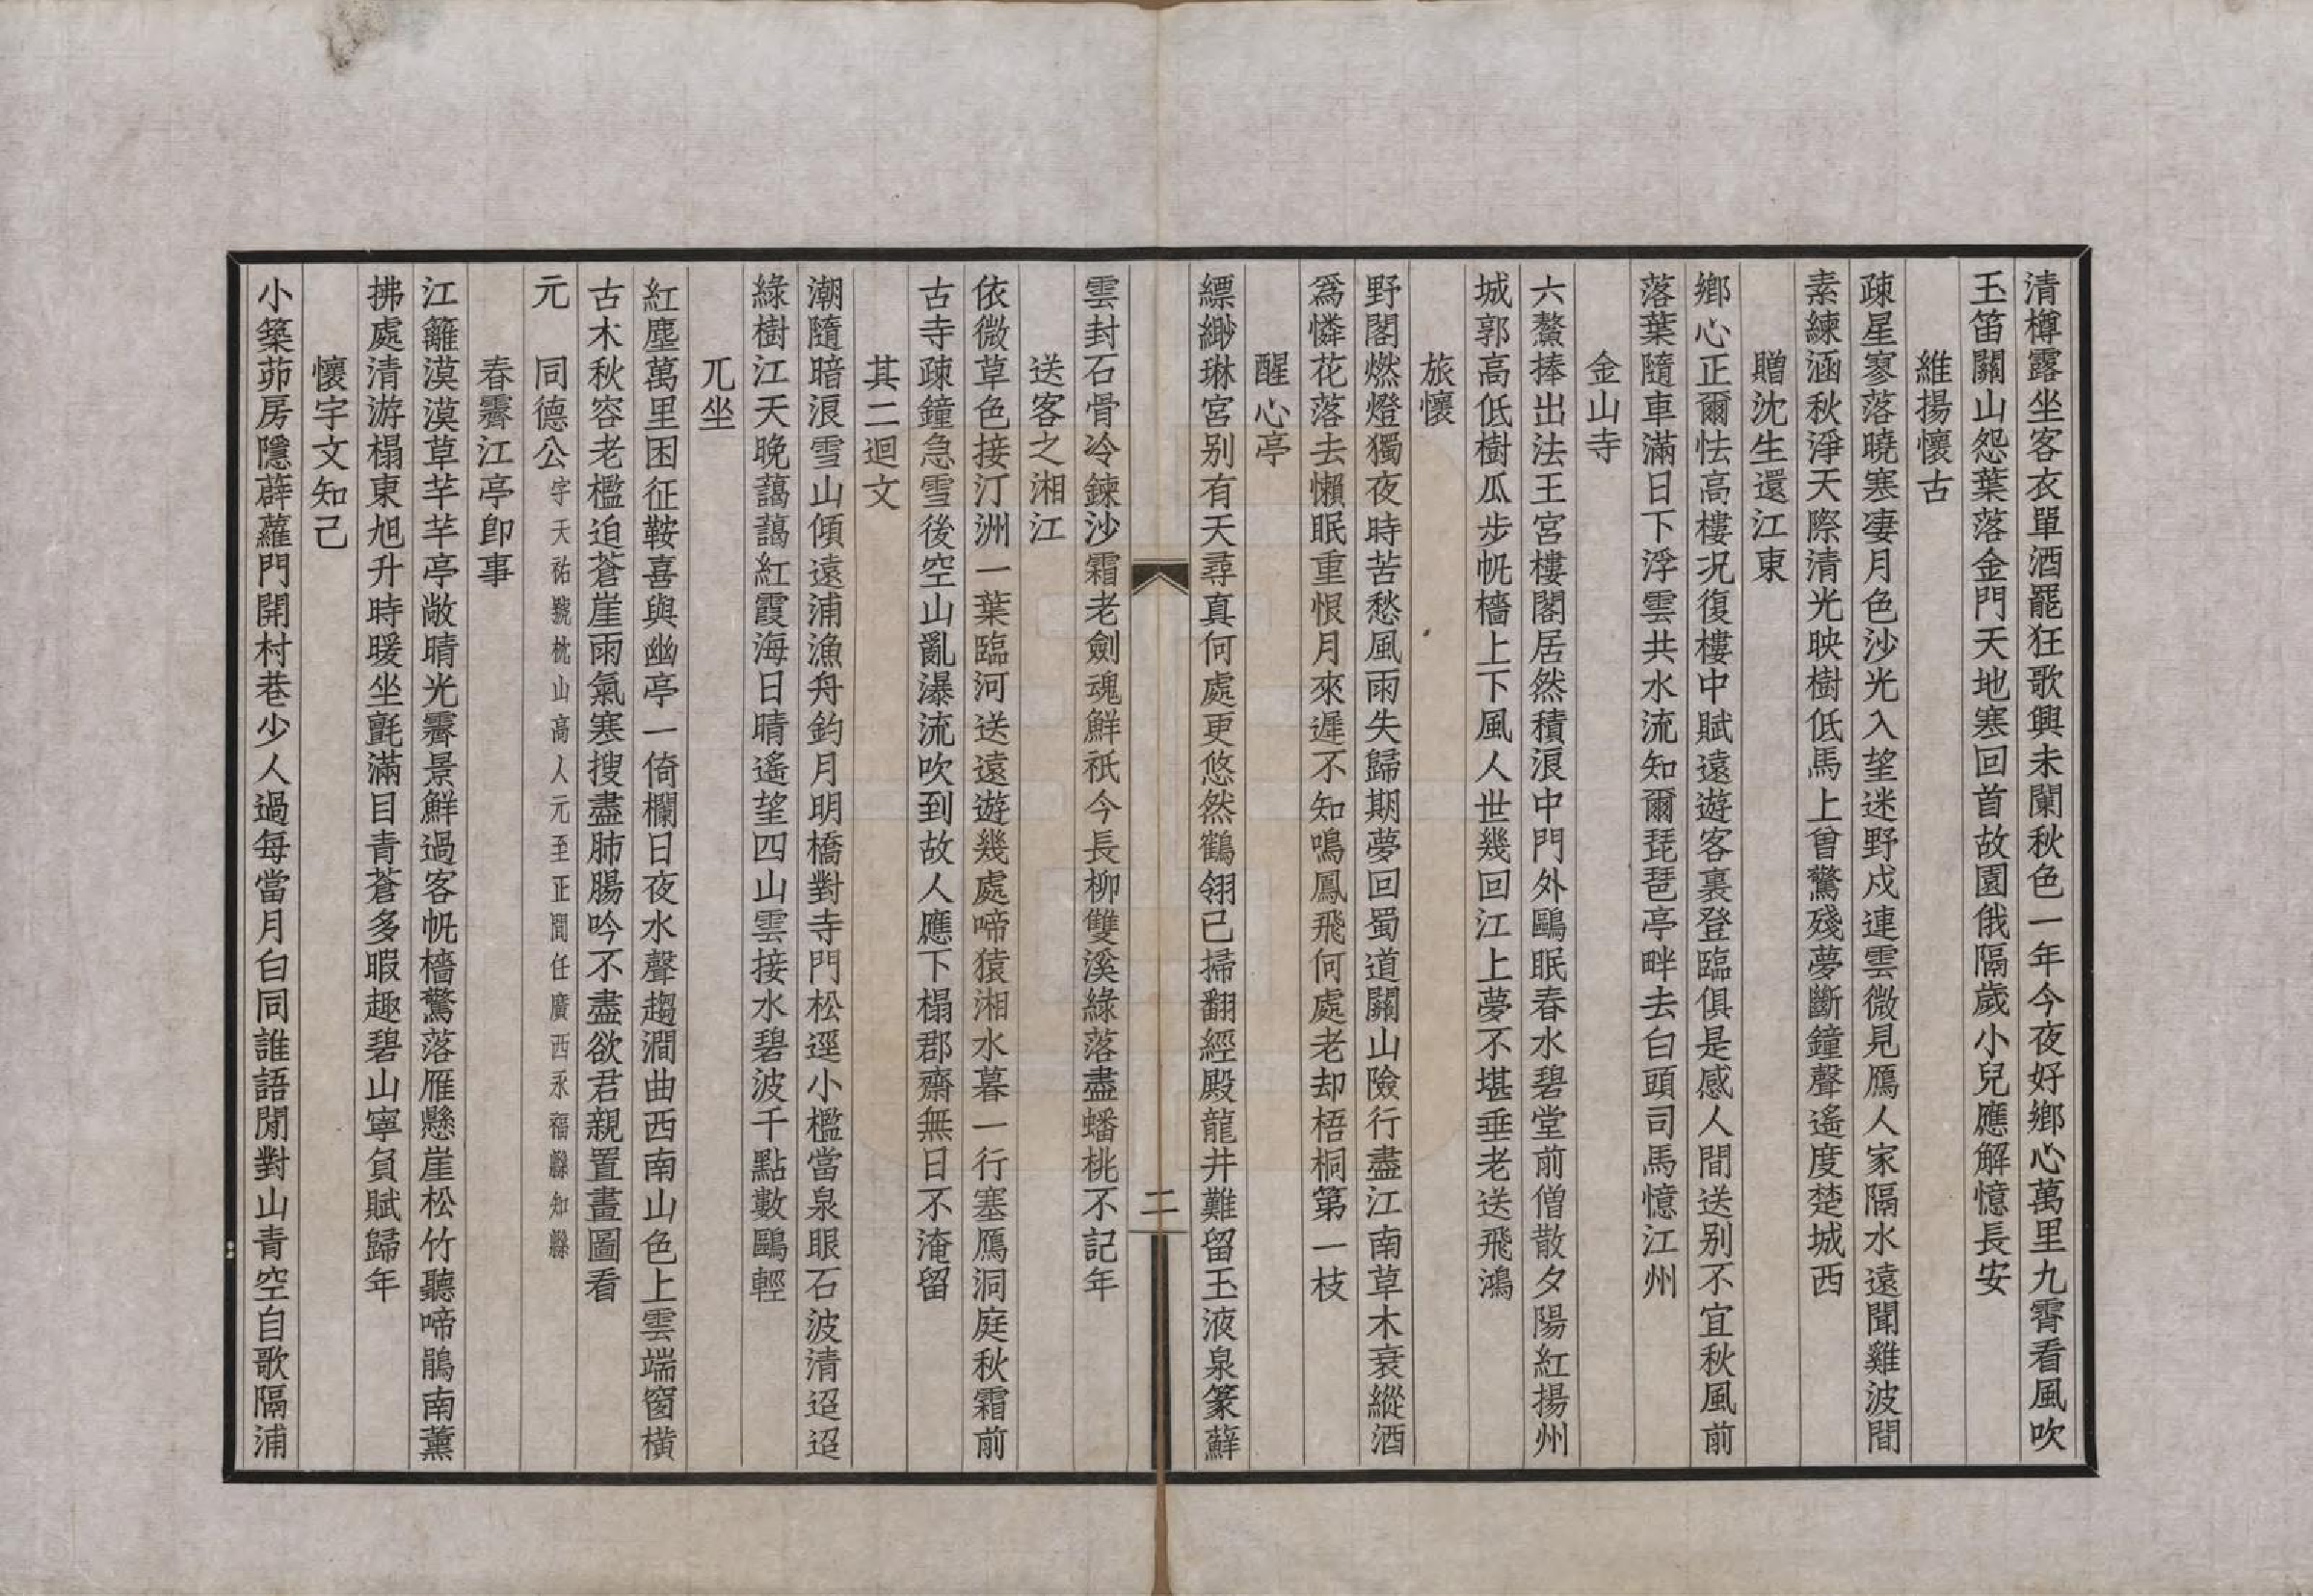 清樽露坐客衣單酒罷狂歌興未闌秋色一年今夜好鄉心萬里九霄看風吹
玉笛關山怨葉落金門天地寒回首故園俄隔歲小兒應解憶長安
維揚懷古
疎星寥落曉寒凄月色沙光入望迷野戍連雲微見鴈人家隔水遠聞雞波間
素練涵秋淨天際清光映樹低馬上曾驚殘夢斷鐘聲遙度楚城西
贈沈生還江東
鄉心正爾怯高樓況復樓中賦遠遊客裏登臨俱是感人間送別不宜秋風前
落葉隨車滿日下浮雲共水流知爾琵琶亭畔去白頭司馬憶江州
金山寺
六鰲捧出法王宮樓閣居然積浪中門外鷗眠春水碧堂前僧散夕陽紅揚州
城郭高低樹瓜步帆檣上下風人世幾回江上夢不堪垂老送飛鴻
旅懷
野閣燃燈獨夜時苦愁風雨失歸期夢回蜀道關山險行盡江南草木衰縱酒
爲憐花落去懶眠重恨月來遲不知鳴鳳飛何處老却梧桐第一枝
醒心亭
縹緲琳宮別有天尋真何處更悠然鶴翎已掃翻經殿龍井難留玉液泉篆蘚
二
雲封石骨冷鍊沙霜老劍魂鮮祇今長柳雙溪綠落盡蟠桃不記年
送客之湘江
依微草色接汀洲一葉臨河送遠遊幾處啼猿湘水暮一行塞鴈洞庭秋霜前
古寺疎鐘急雪後空山亂瀑流吹到故人應下榻郡齋無日不淹留
其二迴文
潮隨暗浪雪山傾遠浦漁舟釣月明橋對寺門松逕小檻當泉眼石波清迢迢
綠樹江天晚藹藹紅霞海日晴遙望四山雲接水碧波千點數鷗輕
兀坐
紅塵萬里困征鞍喜與幽亭一倚欄日夜水聲趨澗曲西南山色上雲端窗橫
古木秋容老檻迫蒼崖雨氣寒搜盡肺腸吟不盡欲君親置畫圖看
元　同德公字天祐號枕山高人元至正閒任廣西永福縣知縣
春霽江亭卽事
江籬漠漠草芊芊亭敞晴光霽景鮮過客帆檣驚落雁懸崖松竹聽啼鵑南薰
拂處清游榻東旭升時暖坐氈滿目青蒼多暇趣碧山寧負賦歸年
懷宇文知己
小築茆房隱薜蘿門開村巷少人過每當月白同誰語閒對山青空自歌隔浦